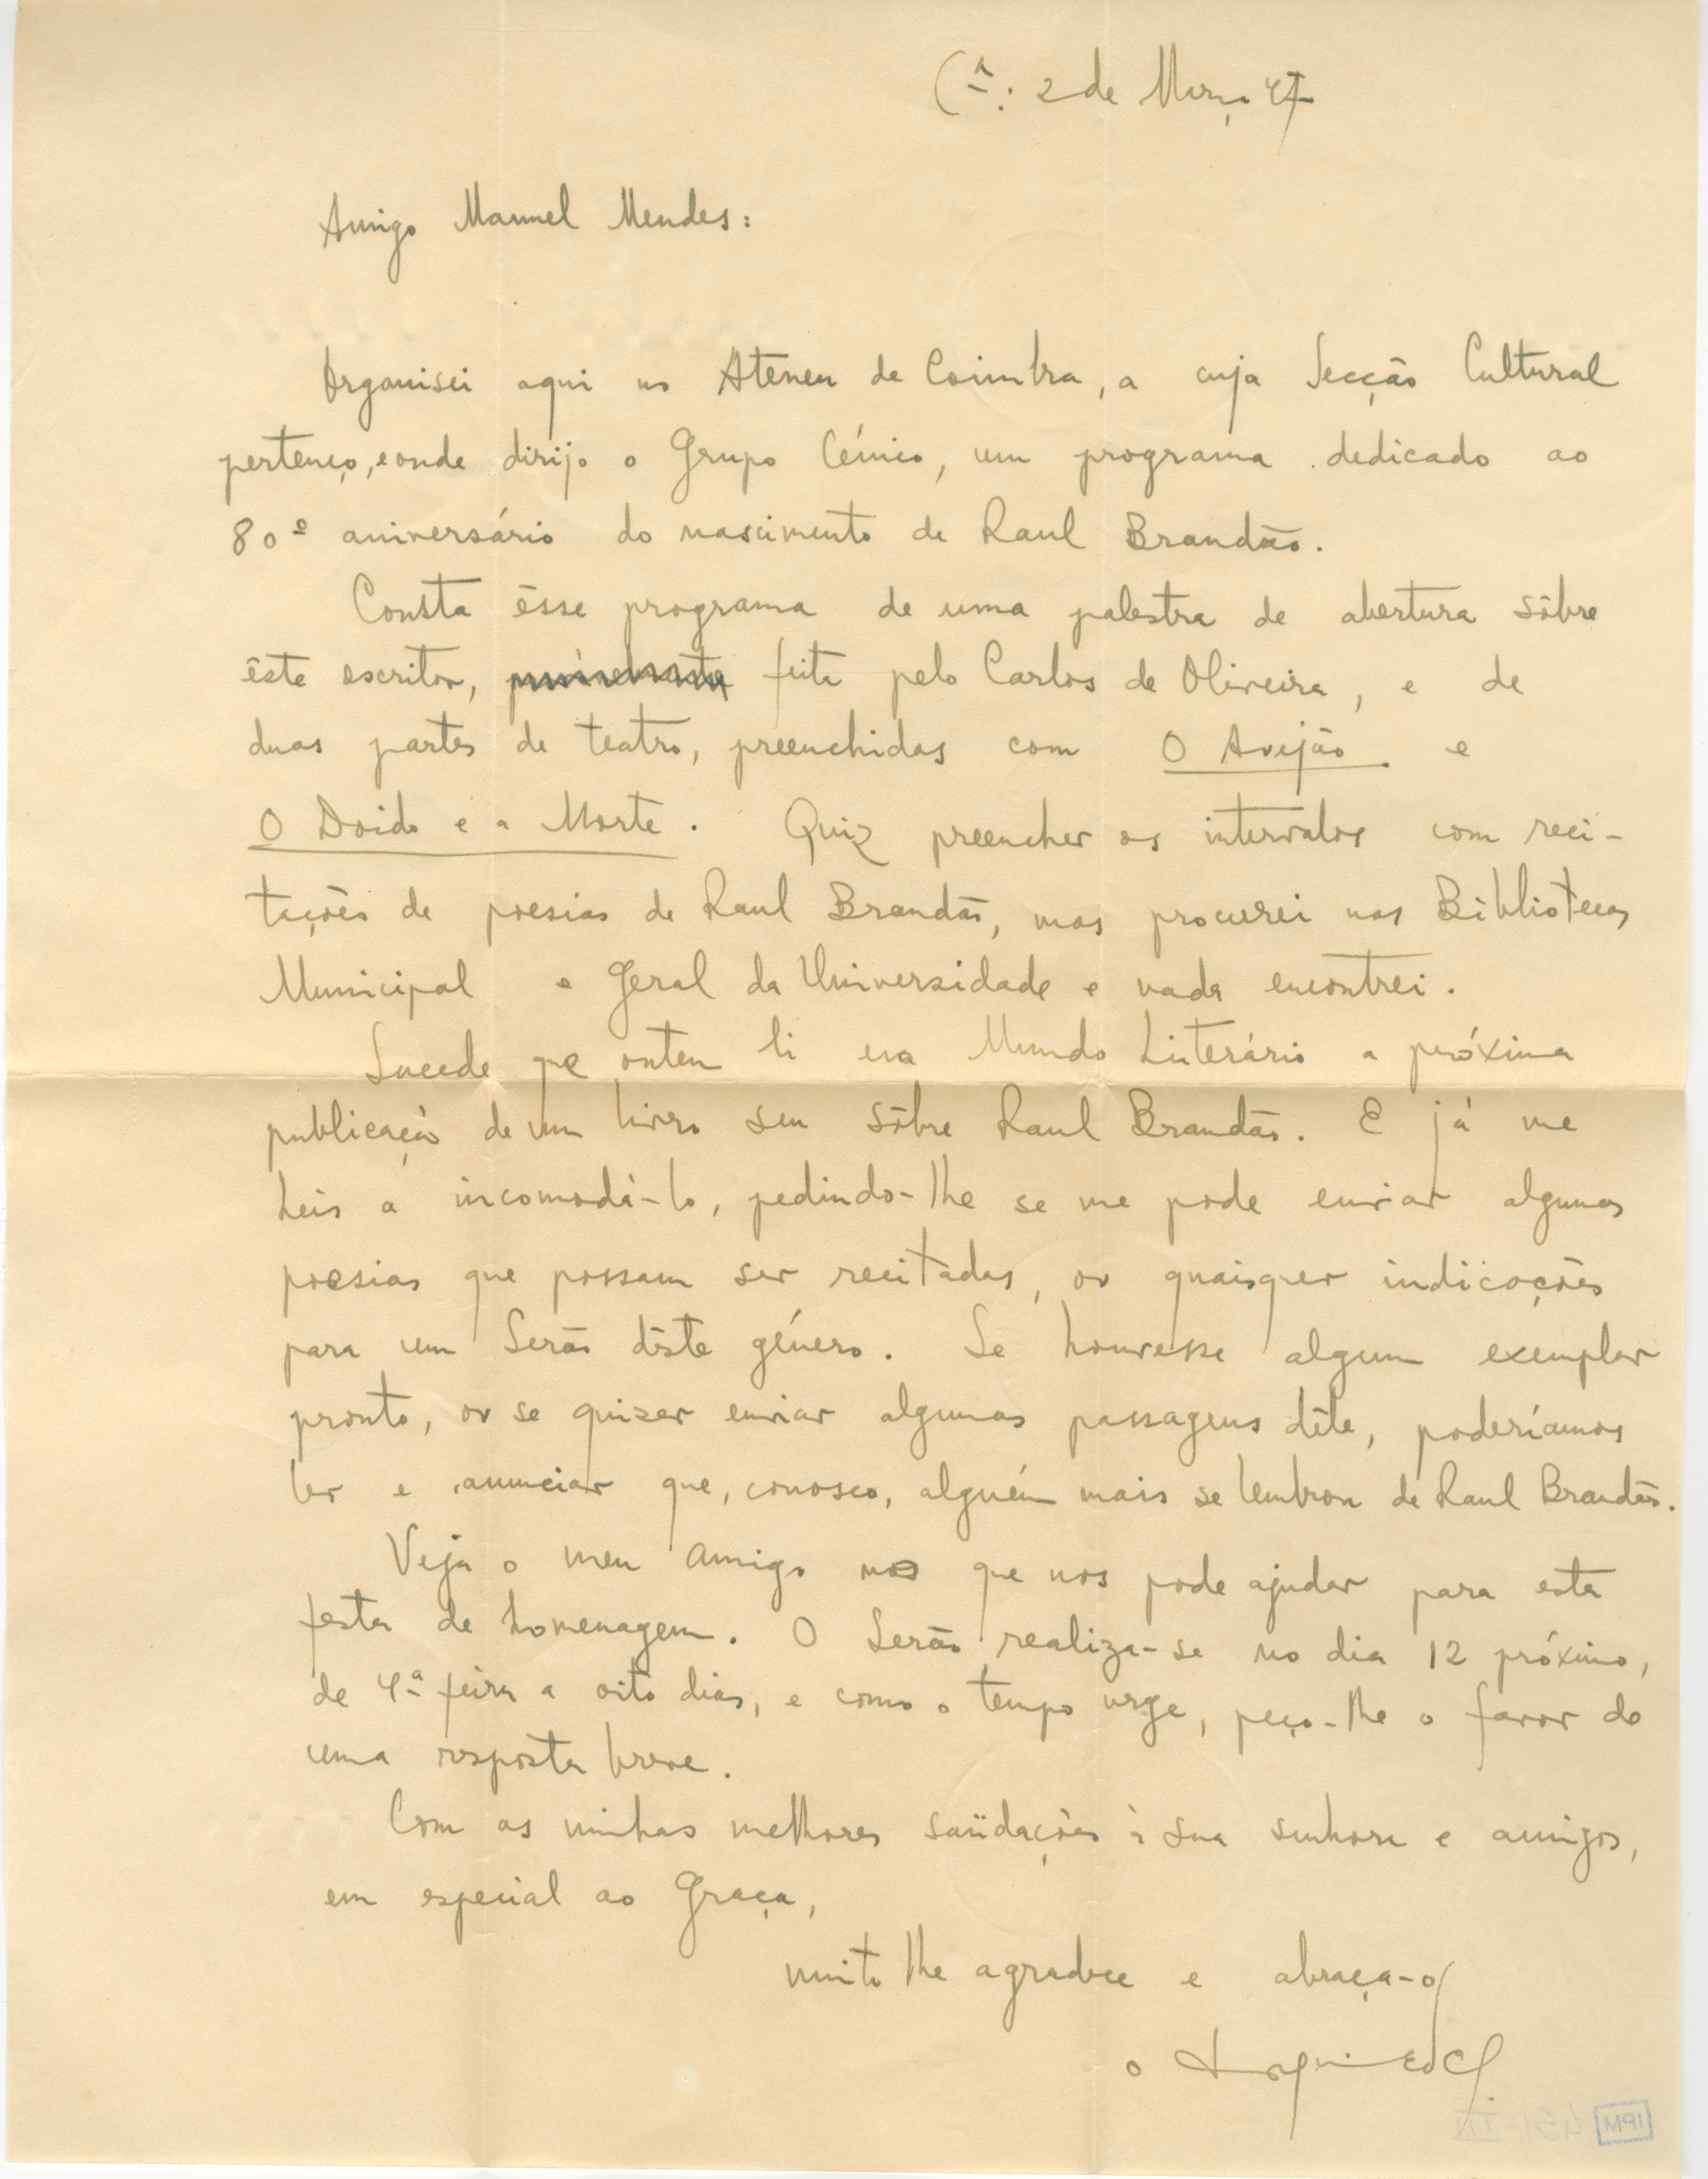 Cª: 2 de Março 47
Amigo Manuel Mendes:
Organisei aqui no Ateneu de Coimbra, a cuja Secção Cultural
pertenço, e onde dirijo o Grupo Cénico, um programa dedicado ao
80º aniversário do nascimento de Raul Brandão.
Consta êsse programa de uma palestra de abertura sôbre
êste escritor, feita pelo Carlos de Oliveira, e de
duas partes de teatro, preenchidas com O Avejão e
O Doido e a Morte. Quiz preencher os intervalos com reci-
tações de poesias de Raul Brandão, mas procurei nas Bibliotecas
Municipal e Geral da Universidade e nada encontrei.
Sucede que ontem li na Mundo Literário a próxima
publicação de um livro seu sôbre Raul Brandão. E já me
heis a incomodá-lo, pedindo-lhe se me pode enviar algumas
poesias que possam ser recitadas, ou quaisquer indicações
para um Serão dêste género. Se houvesse algum exemplar
pronto, ou se quizer enviar algumas passagens dêle, poderíamos
ler e anunciar que, conosco, alguém mais se lembrou de Raul Brandão.
Veja o meu amigo no que nos pode ajudar para esta
festa de homenagem. O Serão realiza-se no dia 12 próximo,
de 4ª feira a oito dias, e como o tempo urge, peço-lhe o favor de
uma resposta breve.
Com as minhas melhores saüdações à sua senhora e amigos,
em especial ao Graça,
muito lhe agradece e abraça-o
o
IPM